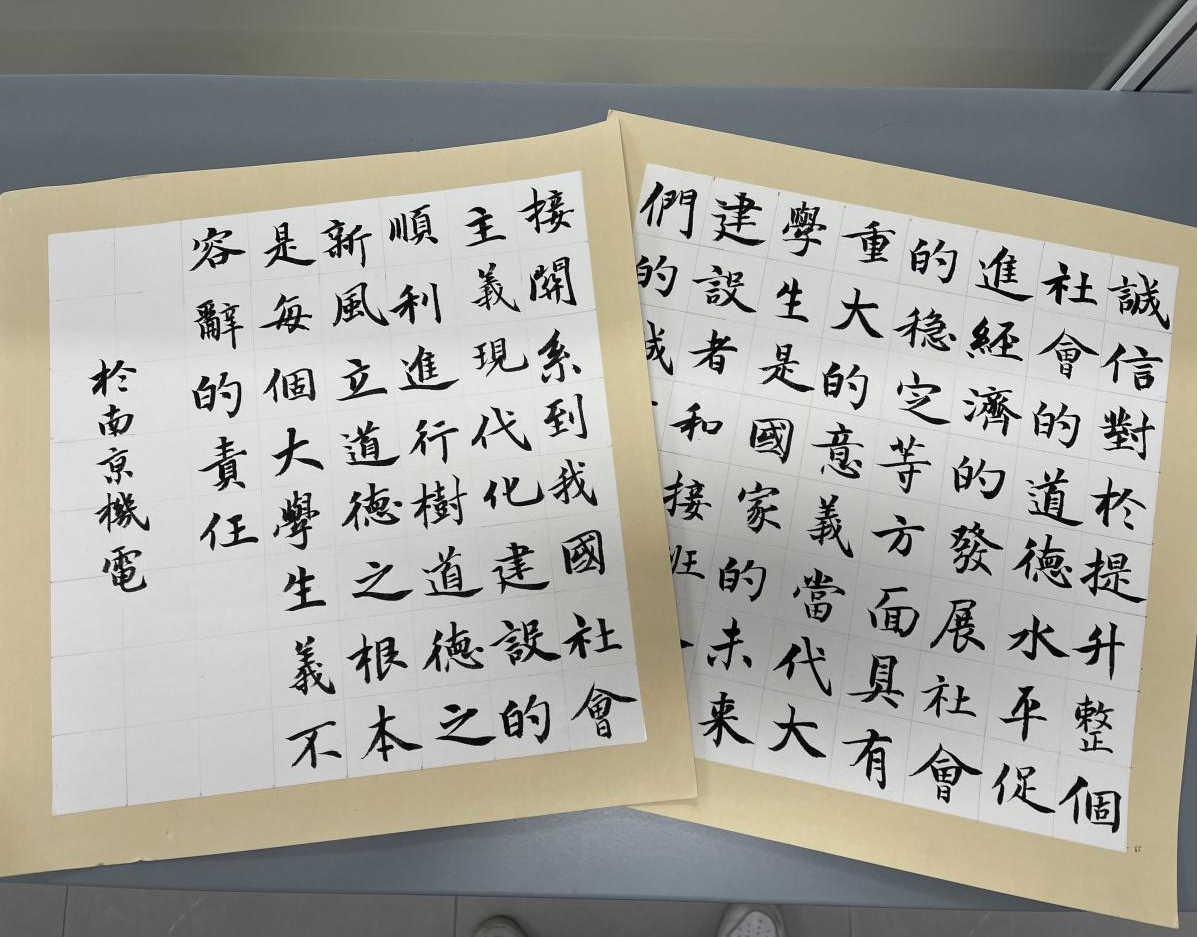 誠信對於提升整個
社會的道德水平促
進經濟的發展社會
的稳定等方面具有
重大的意義當代大
學生是國家的未来
建設者和接班
們的
接關系到我國社會
主義現代化建設的
順利進行樹道德之
新風立道德之根本
是每個大學生義不
容辭的責任
於南京機電